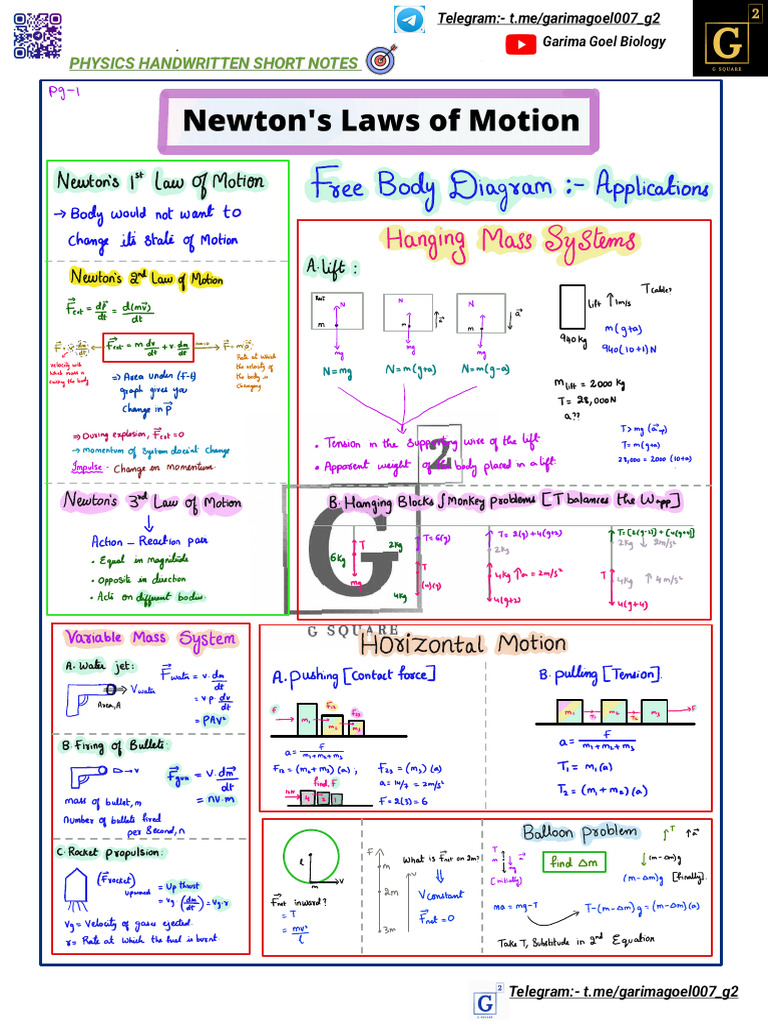 Telegram:- t.me/garimagoel007_g2
Garima Goel Biology
G
2
G SQUARE
PHYSICS HANDWRITTEN SHORT NOTES
Pg-1
Newton's Laws of Motion
Newton's 1st Law of Motion
→ Body would not want to
change its state of Motion
Newton's 2nd Law of Motion
F⃗ext = dp⃗/dt = d(mv⃗)/dt
F⃗ext = m dv/dt + v dm/dt
velocity with
which mass is
exiting the body
Rate at which
the velocity of
the body is
changing
⇒ Area under (F-t)
graph gives you
change in P⃗
⇒ During explosion, F⃗ext = 0
→ Momentum of system doesn't change
Impulse - Change in momentum
Newton's 3rd Law of Motion
Action - Reaction pair
• Equal in magnitude
• Opposite in direction
• Acts on different bodies
Free Body Diagram :- Applications
Hanging Mass Systems
A. Lift :
Rest
N
N
N
m
m
m
a⃗
a⃗
mg
mg
mg
N=mg
N=m(g+a)
N=m(g-a)
• Tension in the supporting wire of the lift
• Apparent weight of the body placed in a lift
T cable?
lift ↑ 1m/s
940 kg
m(g+a)
940(10+1)N
m lift = 2000 kg
T = 28,000N
a??
T>mg (a↑)
T= m(g+a)
28,000 = 2000 (10+a)
2
G
G SQUARE
B. Hanging Blocks / Monkey problems [T balances the Wapp]
6kg
T
mg
2kg
T=6(g)
T
4kg
(4)(g)
T= 2(g) +4(g+2)
2kg
4kg ↑a=2m/s²
4(g+2)
T=[2(g-2)] +[4(g+4)]
2kg ↓ 2m/s²
T
4kg ↑ 4m/s²
4(g+4)
Variable Mass System
A. Water jet:
V water
Area, A
F⃗water = v.dm/dt
= vρ.dv/dt
= ρAv²
B. Firing of Bullets:
→v
F⃗gun = v.dm⃗/dt
= nv.m
mass of bullet, m
number of bullets fired
per second, n
C. Rocket propulsion:
(F⃗rocket) upward = Up thrust
= vg.(dm/dt) = vg.r
Vg = Velocity of gases ejected.
r = Rate at which the fuel is burnt.
Horizontal Motion
A. pushing [contact force]
F
m1
F12
m2
F23
m3
a = F/m1+m2+m3
F12 = (m2+m3) (a) ;
F23 = (m3) (a)
find F
a = 14/7 = 2m/s²
4
2
1
F = 2(3) = 6
B. pulling [Tension].
m1
T1
m2
T2
m3
F
a = F/m1+m2+m3
T1 = m1(a)
T2 = (m1+m2)(a)
l
m
v
F⃗net inward?
= T
= mv²/l
F
m
2m
3m
v
What is F⃗net on 2m?
V constant
F⃗net = 0
Balloon problem
T
m
a⃗
mg
[initially]
find Δm
↑T ↑a⃗
↓(m-Δm)g
(m-Δm)g [finally].
ma = mg-T
T-(m-Δm)g = (m-Δm)(a)
Take T, Substitute in 2nd Equation
G
2
Telegram:- t.me/garimagoel007_g2